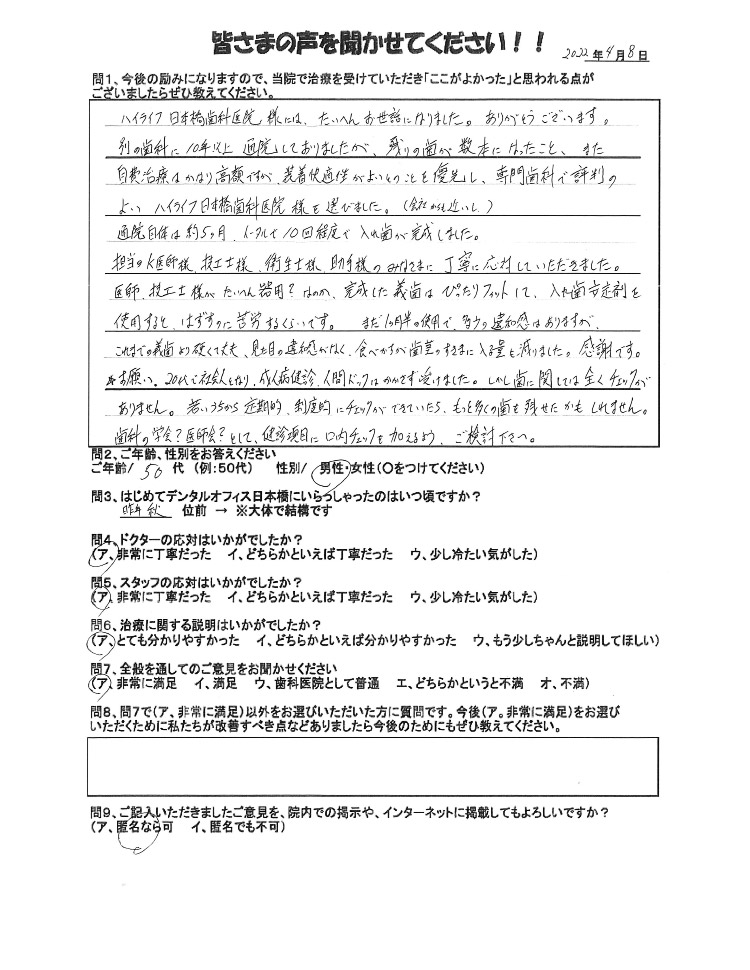 皆さまの声を聞かせてください！！
2022年4月8日
問1、今後の励みになりますので、当院で治療を受けていただき「ここがよかった」と思われる点が
ございましたらぜひ教えてください。
ハイライフ日本橋歯科医院様には、たいへんお世話になりました。ありがとうございます。
別の歯科に10年以上通院しておりましたが、残りの歯が数本になったこと、また
自費治療はかなり高額ですが、装着快適性がよいとのことを優先し、専門歯科で評判の
よい ハイライフ日本橋歯科医院様を選びました。（会社からも近いし）
通院自体は約5ヶ月、トータルで10回程度で入れ歯が完成しました。
担当のK医師様、技工士様、衛生士様、助手様のみなさまに丁寧に応対していただきました。
医師、技工士様がたいへん器用？なのか、完成した義歯はぴったりフィットして、入れ歯安定剤を
使用すると、はずすのに苦労するくらいです。まだ1ヶ月半の使用で、多少の違和感はありますが、
これまでの義歯より硬くて丈夫、見た目の違和感がなく、食べかすが歯茎のすきまに入る量も減りました。感謝です。
お願い、20代で社会人となり、成人病健診、人間ドックはかかさず受けました。しかし歯に関しては全くチェックが
ありません。若いうちから定期的、制度的にチェックができていたら、もっと多くの歯を残せたかもしれません。
歯科の学会？医師会？として、健診項目に口内チェックを加えるよう、ご検討下さい。
問2、ご年齢、性別をお答えください
ご年齢/ 50 代 （例:50代） 性別/ 男性・女性（○をつけてください）
問3、はじめてデンタルオフィス日本橋にいらっしゃったのはいつ頃ですか？
昨年秋 位前 → ※大体で結構です
問4、ドクターの応対はいかがでしたか？
（ア、非常に丁寧だった イ、どちらかといえば丁寧だった ウ、少し冷たい気がした）
問5、スタッフの応対はいかがでしたか？
（ア、非常に丁寧だった イ、どちらかといえば丁寧だった ウ、少し冷たい気がした）
問6、治療に関する説明はいかがでしたか？
（ア、とても分かりやすかった イ、どちらかといえば分かりやすかった ウ、もう少しちゃんと説明してほしい）
問7、全般を通してのご意見をお聞かせください
（ア、非常に満足 イ、満足 ウ、歯科医院として普通 エ、どちらかというと不満 オ、不満）
問8、問7で（ア、非常に満足）以外をお選びいただいた方に質問です。今後（ア。非常に満足）をお選び
いただくために私たちが改善すべき点などありましたら今後のためにもぜひ教えてください。
問9、ご記入いただきましたご意見を、院内での掲示や、インターネットに掲載してもよろしいですか？
（ア、匿名なら可 イ、匿名でも不可）